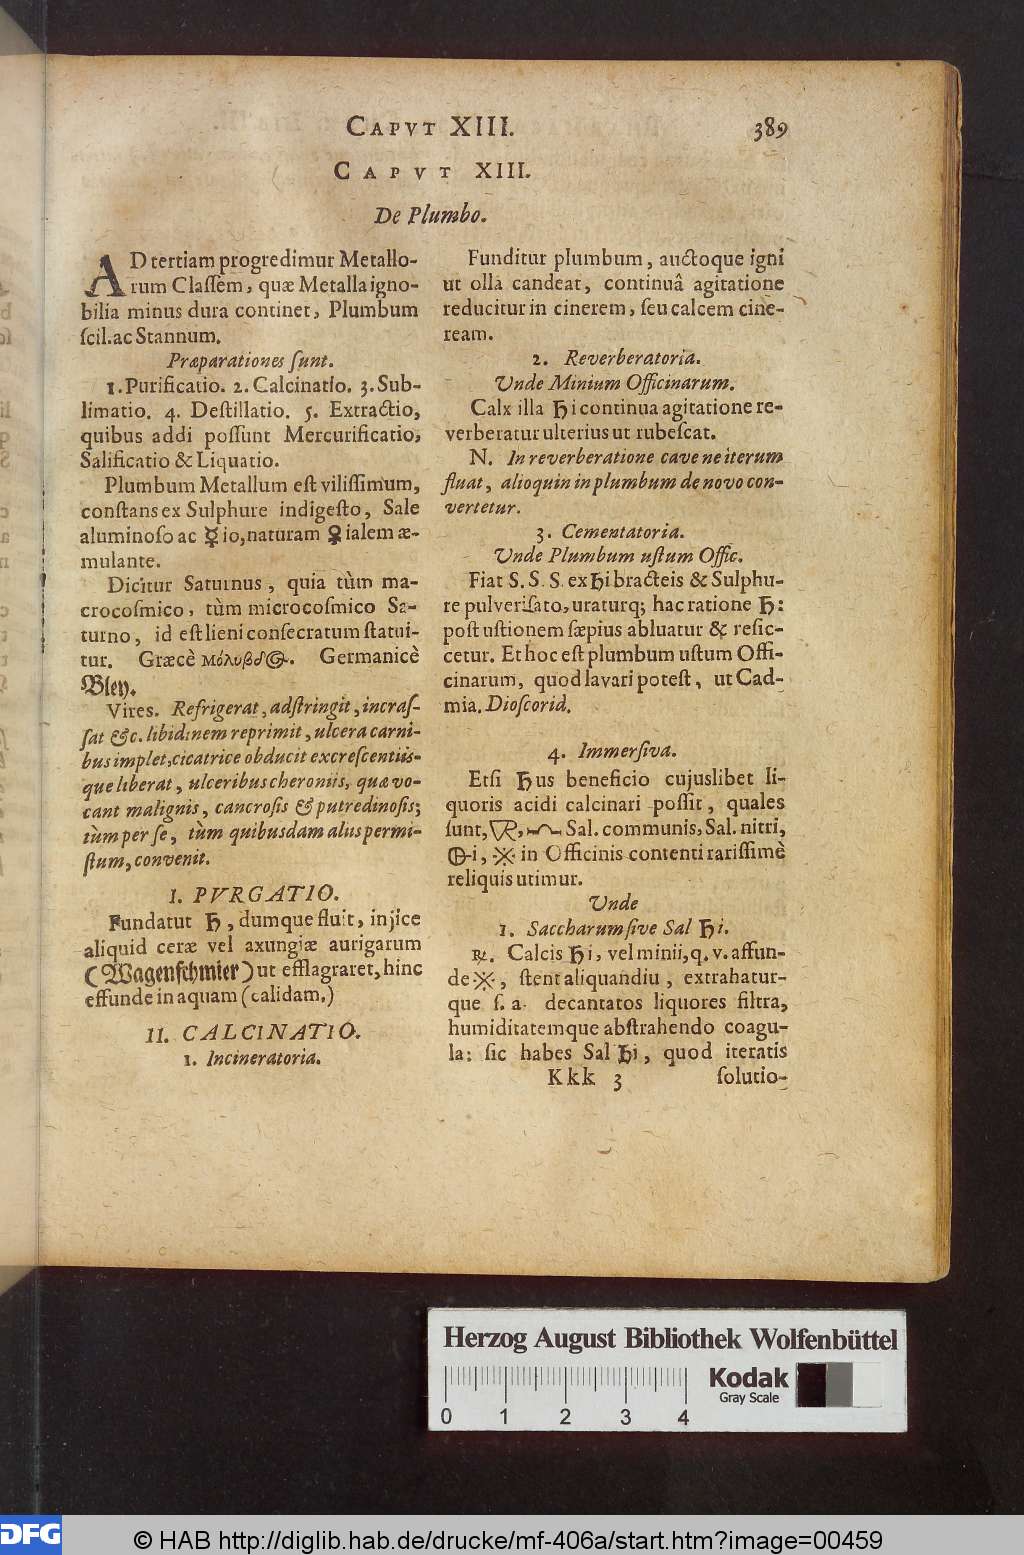 CAPVT XIII. 389
CAPVT XIII.
De Plumbo.
AD tertiam progredimur Metallo-
rum Claſſem, quæ Metalla igno-
bilia minus dura continet, Plumbum
ſcil. ac Stannum.
Præparationes ſunt.
1. Purificatio. 2. Calcinatio. 3. Sub-
limatio. 4. Deſtillatio. 5. Extractio,
quibus addi poſſunt Mercurificatio,
Salificatio & Liquatio.
Plumbum Metallum eſt viliſſimum,
conſtans ex Sulphure indigeſto, Sale
aluminoſo ac ☿io, naturam ♀ialem æ-
mulante.
Dicitur Saturnus, quia tùm ma-
crocoſmico, tùm microcoſmico Sa-
turno, id eſt lieni conſecratum ſtatui-
tur. Græcè μόλυβδ. Germanicè
Bley.
Vires. Refrigerat, adſtringit, incraſ-
ſat &c. libidinem reprimit, ulcera carni-
bus implet, cicatrice obducit excreſcentiis-
que liberat, ulceribus cheroniis, quæ vo-
cant malignis, cancroſis & putredinoſis;
tùm per ſe, tùm quibusdam aliis permi-
ſtum, convenit.
I. PVRGATIO.
Fundatut ♄, dumque fluit, injice
aliquid ceræ vel axungiæ aurigarum
(Wagenſchmier) ut efflagraret, hinc
effunde in aquam (calidam.)
II. CALCINATIO.
1. Incineratoria.
Funditur plumbum, auctoque igni
ut olla candeat, continuâ agitatione
reducitur in cinerem, ſeu calcem cine-
ream.
2. Reverberatoria.
Unde Minium Officinarum.
Calx illa ♄i continua agitatione re-
verberatur ulterius ut rubeſcat.
N. In reverberatione cave ne iterum
fluat, alioquin in plumbum de novo con-
vertetur.
3. Cementatoria.
Unde Plumbum uſtum Offic.
Fiat S. S. S. ex ♄i bracteis & Sulphu-
re pulveriſato, uraturq; hac ratione ♄:
poſt uſtionem ſæpius abluatur & reſic-
cetur. Et hoc eſt plumbum uſtum Offi-
cinarum, quod lavari poteſt, ut Cad-
mia. Dioſcorid.
4. Immerſiva.
Etſi ♄us beneficio cujuslibet li-
quoris acidi calcinari poſſit, quales
ſunt, Sal. communis, Sal. nitri,
i, in Officinis contenti rariſſimè
reliquis utimur.
Unde
1. Saccharum ſive Sal ♄i.
℞. Calcis ♄i, vel minii, q. v. affun-
de, ſtent aliquandiu, extrahatur-
que ſ. a. decantatos liquores filtra,
humiditatemque abſtrahendo coagu-
la: ſic habes Sal ♄i, quod iteratis
Kkk 3 ſolutio-
Herzog August Bibliothek Wolfenbüttel
Kodak
Gray Scale
0 1 2 3 4
DFG
© HAB http://diglib.hab.de/drucke/mf-406a/start.htm?image=00459